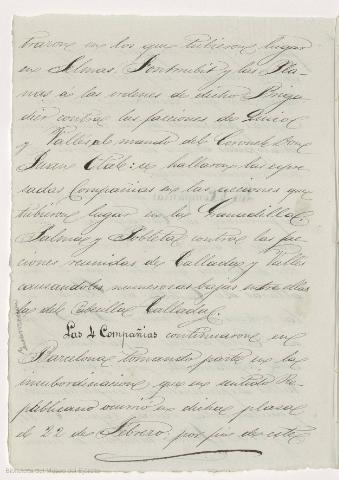 traron en los que tubieron lugar
en Selmas, Fontrubí y las Pla-
nas á las ordenes de dicho Briga
dier contra las facciones de Quico
y Vallés al mando del Coronel Don
Juan : se hallaron las espre-
sadas Compañias en las acciones que
tubieron lugar en la Granadilla
Salmas y Pobleta contra las fac
ciones reunidas de Calladus y Vallés
causandoles numerosas bajas entre ellas
la del Cabecilla Calladus.
Las 4 Compañias continuaron en
Barcelona tomando parte en la
insubordinacion que en sentido Re
publicano ocurrió en dicha plaza
el 22 de Febrero, por fin de este
Biblioteca del Museo del Ejército